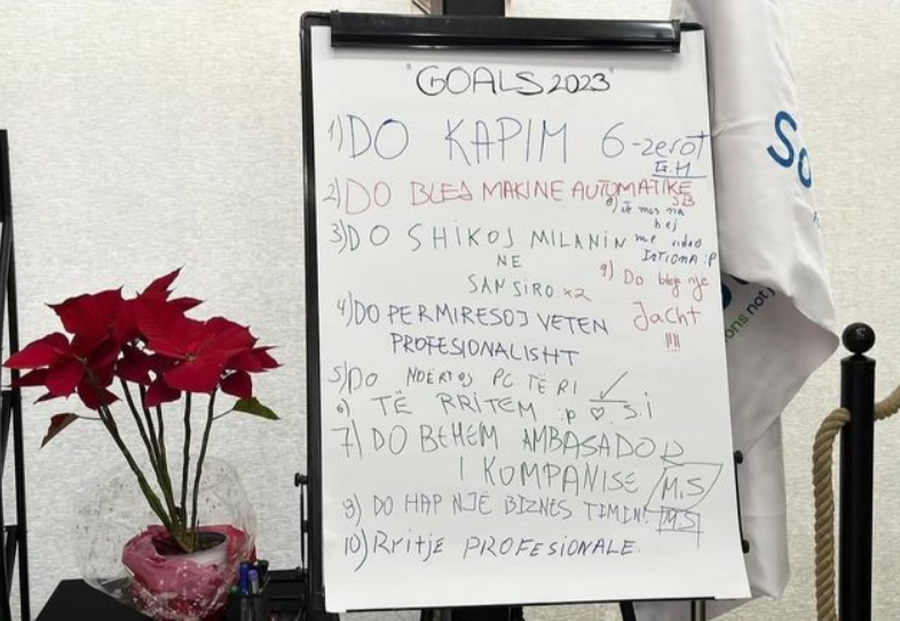 "GOALS 2023"
1) DO KAPIM 6-zerot
E.H
2) DO BLEJ MAKINE AUTOMATIKE
SB
3) DO SHIKOJ MILANIN
NE
SAN SIRO x2
8) Te mos na
hej
me video
9) Do bleje nje
Jacht
!!!!
4) DO PERMIRESOJ VETEN
PROFESIONALISHT
5) DO NDERTOJ PC TË RI
6) TË RRITEM :p ♡ S.i
7) DO BEHEM AMBASADOR
I KOMPANISE M.S
8) DO HAP NJË BIZNES TIMIN! M.S
10) Rritje PROFESIONALE.
So
ons not j